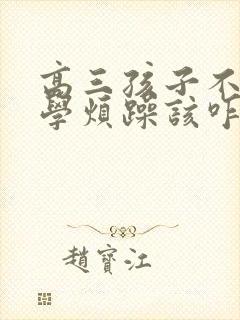 高三孩子不
學煩躁該咋
趙寶江